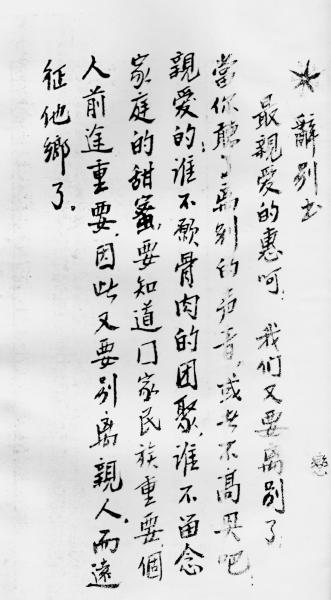 辭别书
最親爱的惠呵：我们又要离别了，
當你聽了离别的声音，或者不高兴吧！
親爱的：谁不愿骨肉的团聚，谁不留念
家庭的甜蜜，要知道门家民族重要，個
人前途重要，因此又要别离親人，而遠
征他鄉了。
戀